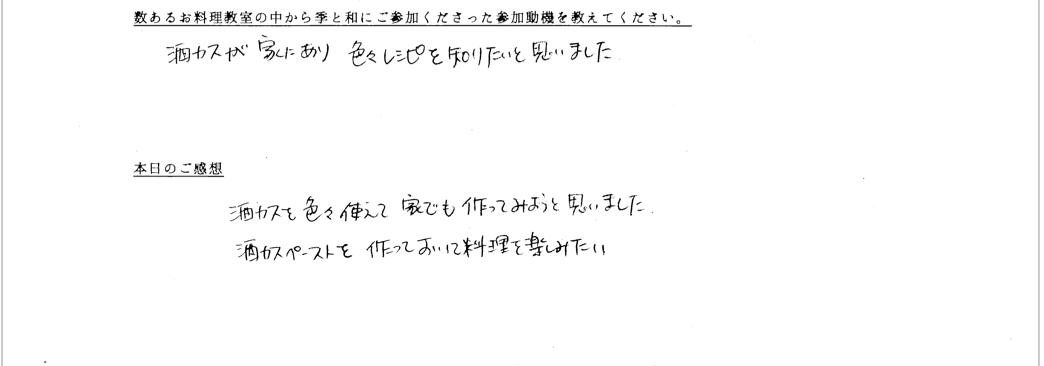 数あるお料理教室の中から季と和にご参加くださった参加動機を教えてください。
酒カスが家にあり 色々レシピを知りたいと思いました
本日のご感想
酒カスを色々使えて 家でも作ってみようと思いました.
酒カスペーストを 作っておいて料理を楽しみたい